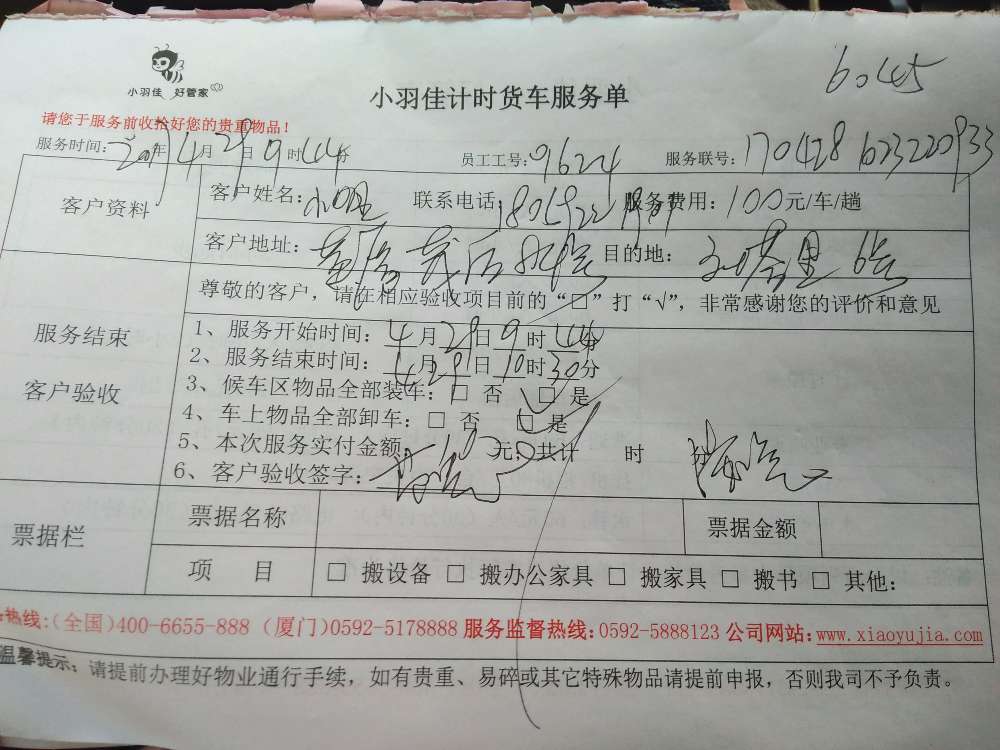 6045
小羽佳 好管家
小羽佳计时货车服务单
请您于服务前收拾好您的贵重物品！
服务时间：2017年4月29日9时44分 员工工号：09624 服务联号：170428623220933
客户资料 客户姓名：小 联系电话： 服务费用：100元/车/趟
客户地址： 目的地：
尊敬的客户，请在相应验收项目前的“□”打“√”，非常感谢您的评价和意见
服务结束
客户验收
1、服务开始时间：4月29日9时44分
2、服务结束时间：4月29日10时30分
3、候车区物品全部装车：□ 否 □ 是
4、车上物品全部卸车：□ 否 □ 是
5、本次服务实付金额： 元；共计 时
6、客户验收签字：
票据栏 票据名称 票据金额
项 目 □ 搬设备 □ 搬办公家具 □ 搬家具 □ 搬书 □ 其他：
热线：(全国)400-6655-888 (厦门)0592-5178888 服务监督热线：0592-5888123 公司网站：www.xiaoyujia.com
温馨提示：请提前办理好物业通行手续，如有贵重、易碎或其它特殊物品请提前申报，否则我司不予负责。